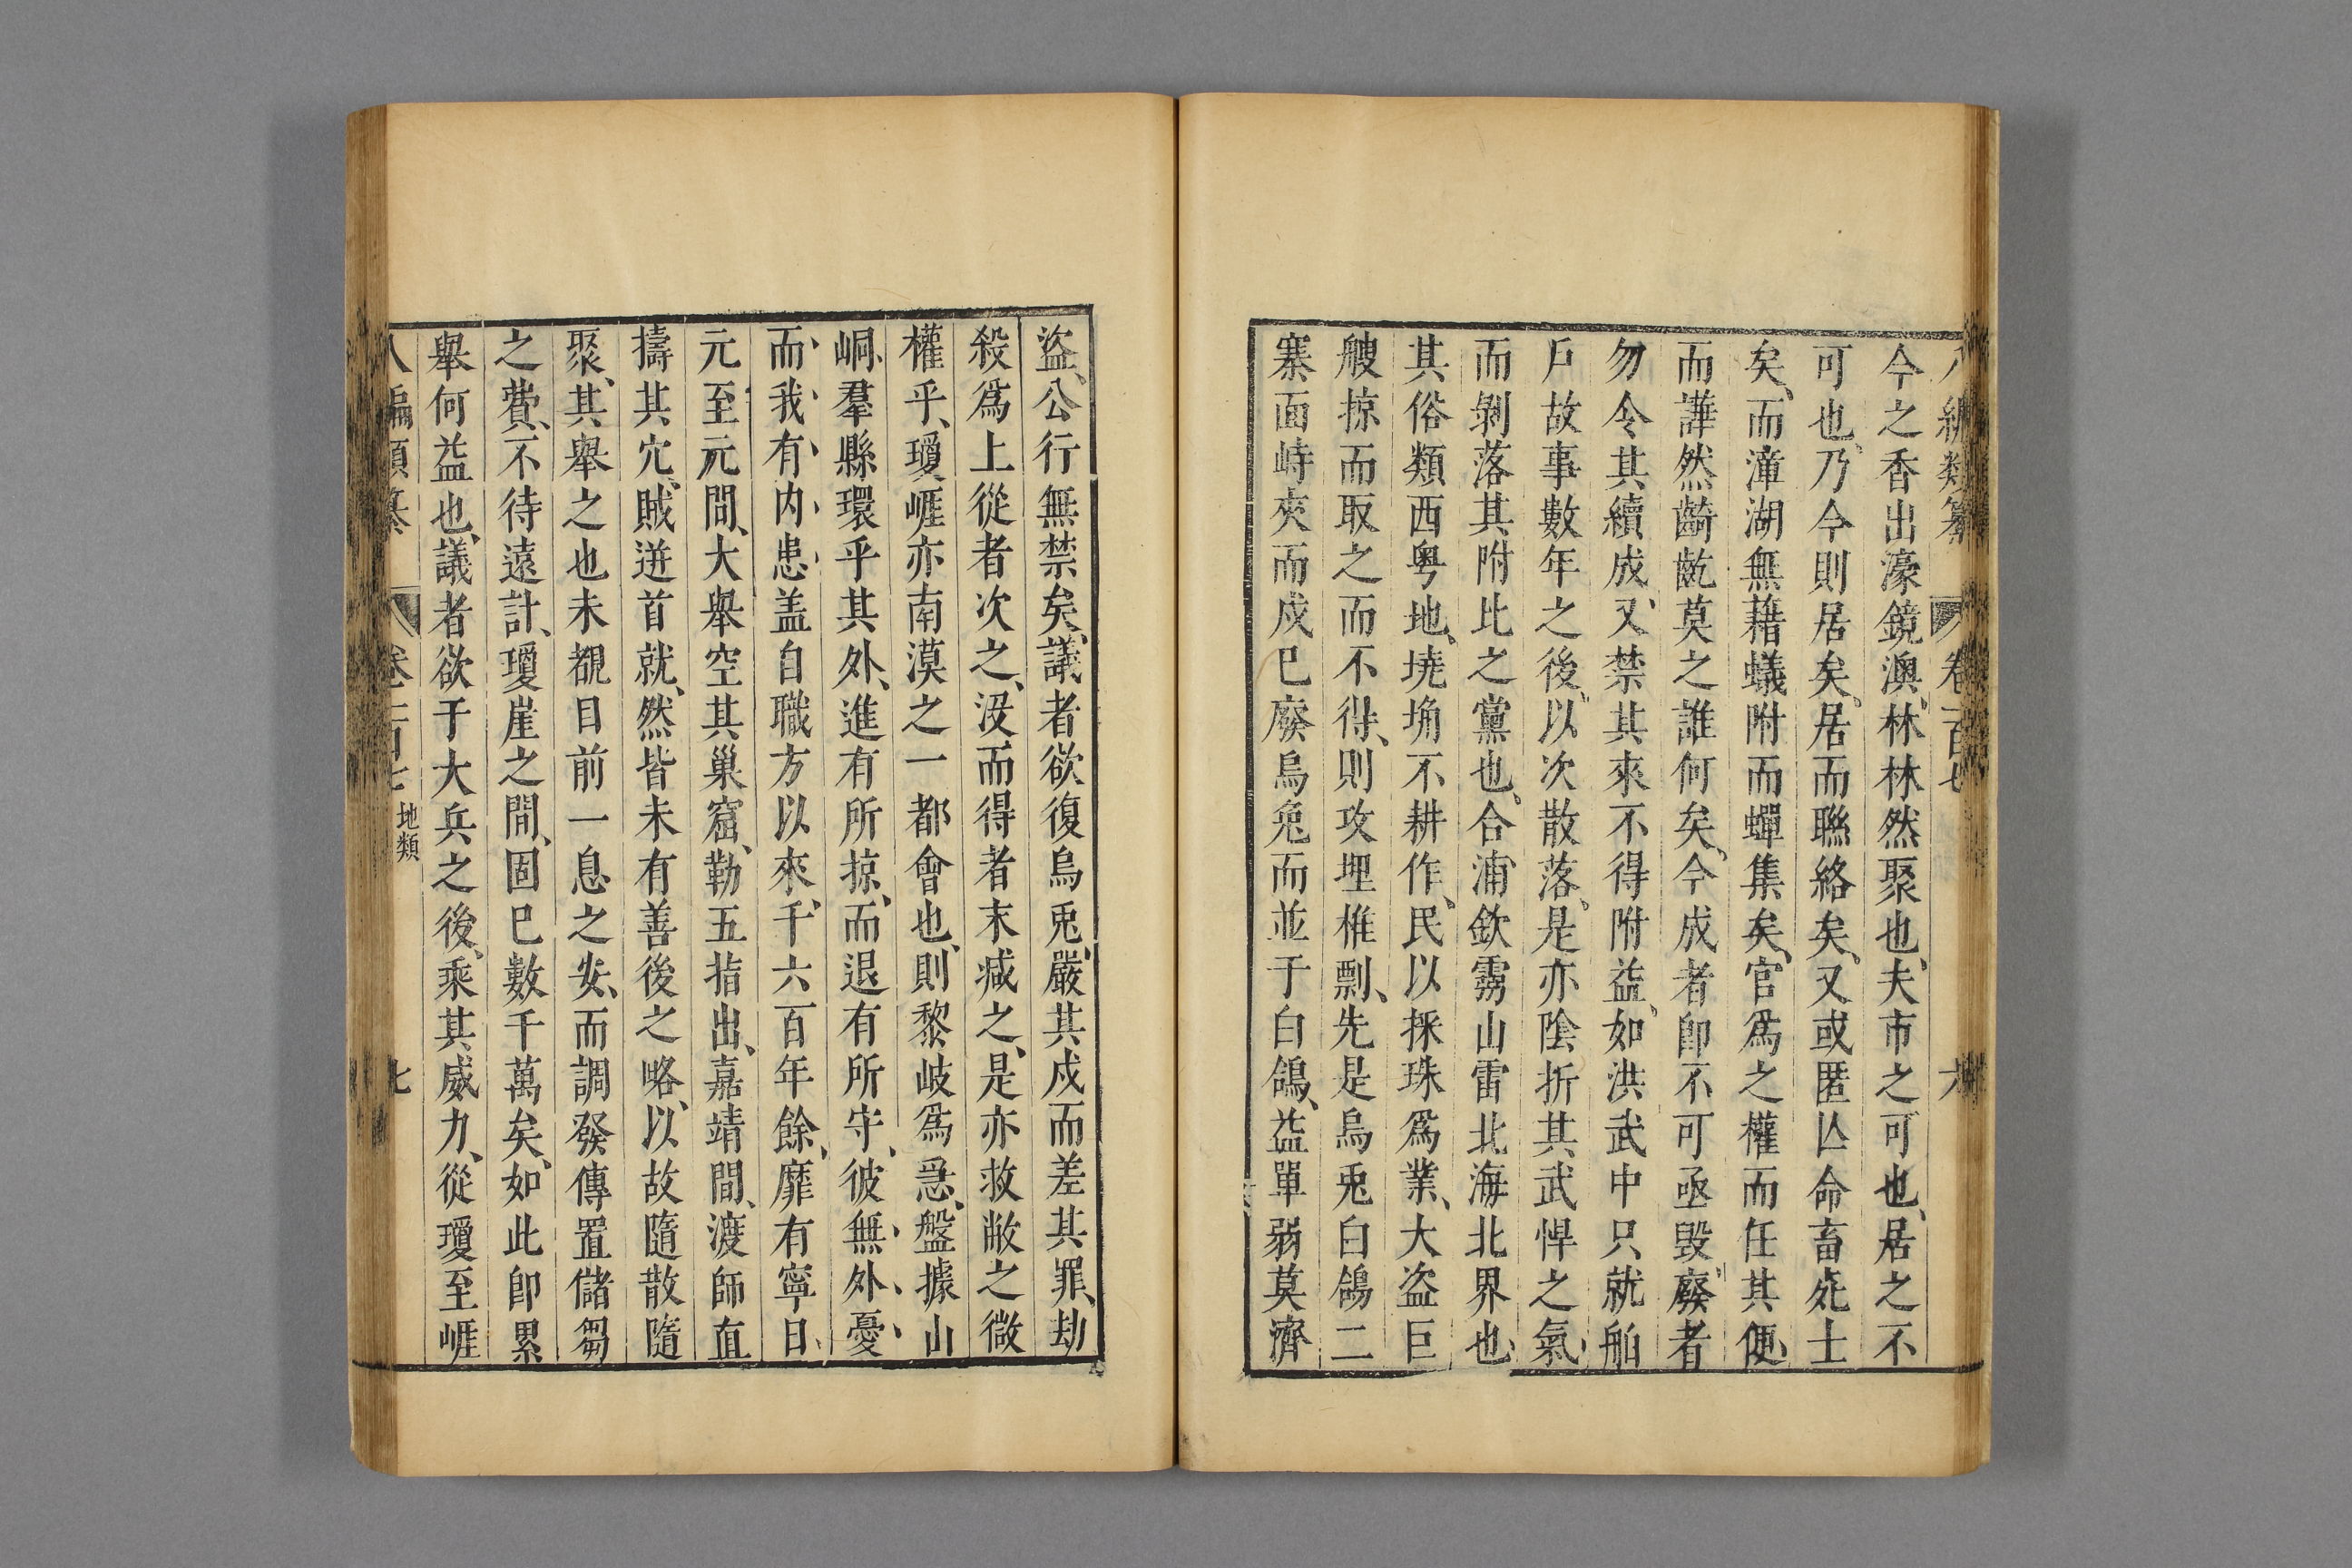 八編類纂 卷一百七 六
今之香出濠鏡澳、林林然聚也、夫市之可也、居之不
可也、乃今則居矣、居而聯絡矣、又或匿亾命畜死士
矣、而漳湖無藉蟻附而蟬集矣、官爲之權而任其便、
而譁然齮齕莫之誰何矣、今成者卽不可亟毀、廢者
勿令其續成、又禁其來不得附益、如洪武中只就舶
戶故事數年之後、以次散落、是亦陰折其武悍之氣、
而剝落其附比之黨也、合浦欽霱山雷北海北界也、
其俗類西粤地、墝埆不耕作、民以採珠爲業、大盜巨
艘掠而取之而不得、則攻埋椎剽、先是烏兎白鴿二
寨面峙夾而戍巳廢烏兎而並于白鴿、益單弱莫濟
盜、公行無禁矣、議者欲復烏兎、嚴其戍而差其罪、劫
殺爲上從者次之、没而得者末減之、是亦救敝之微
權乎、瓊崕亦南漠之一都會也、則黎岐爲惡、盤據山
峒、羣縣環乎其外、進有所掠、而退有所守、彼無外憂
而我有内患盖自職方以來、千六百年餘、靡有寧日、
元至元間、大舉空其巢窟、勒五指出、嘉靖間、渡師直
擣其穴、賊迸首就、然皆未有善後之略、以故隨散隨
聚、其舉之也未覩目前一息之安、而調發傳置儲芻
之費、不待遠計、瓊崖之間、固巳數千萬矣、如此卽累
舉何益也、議者欲于大兵之後、乘其威力、從瓊至崕
八編類纂 卷一百七 地類 七